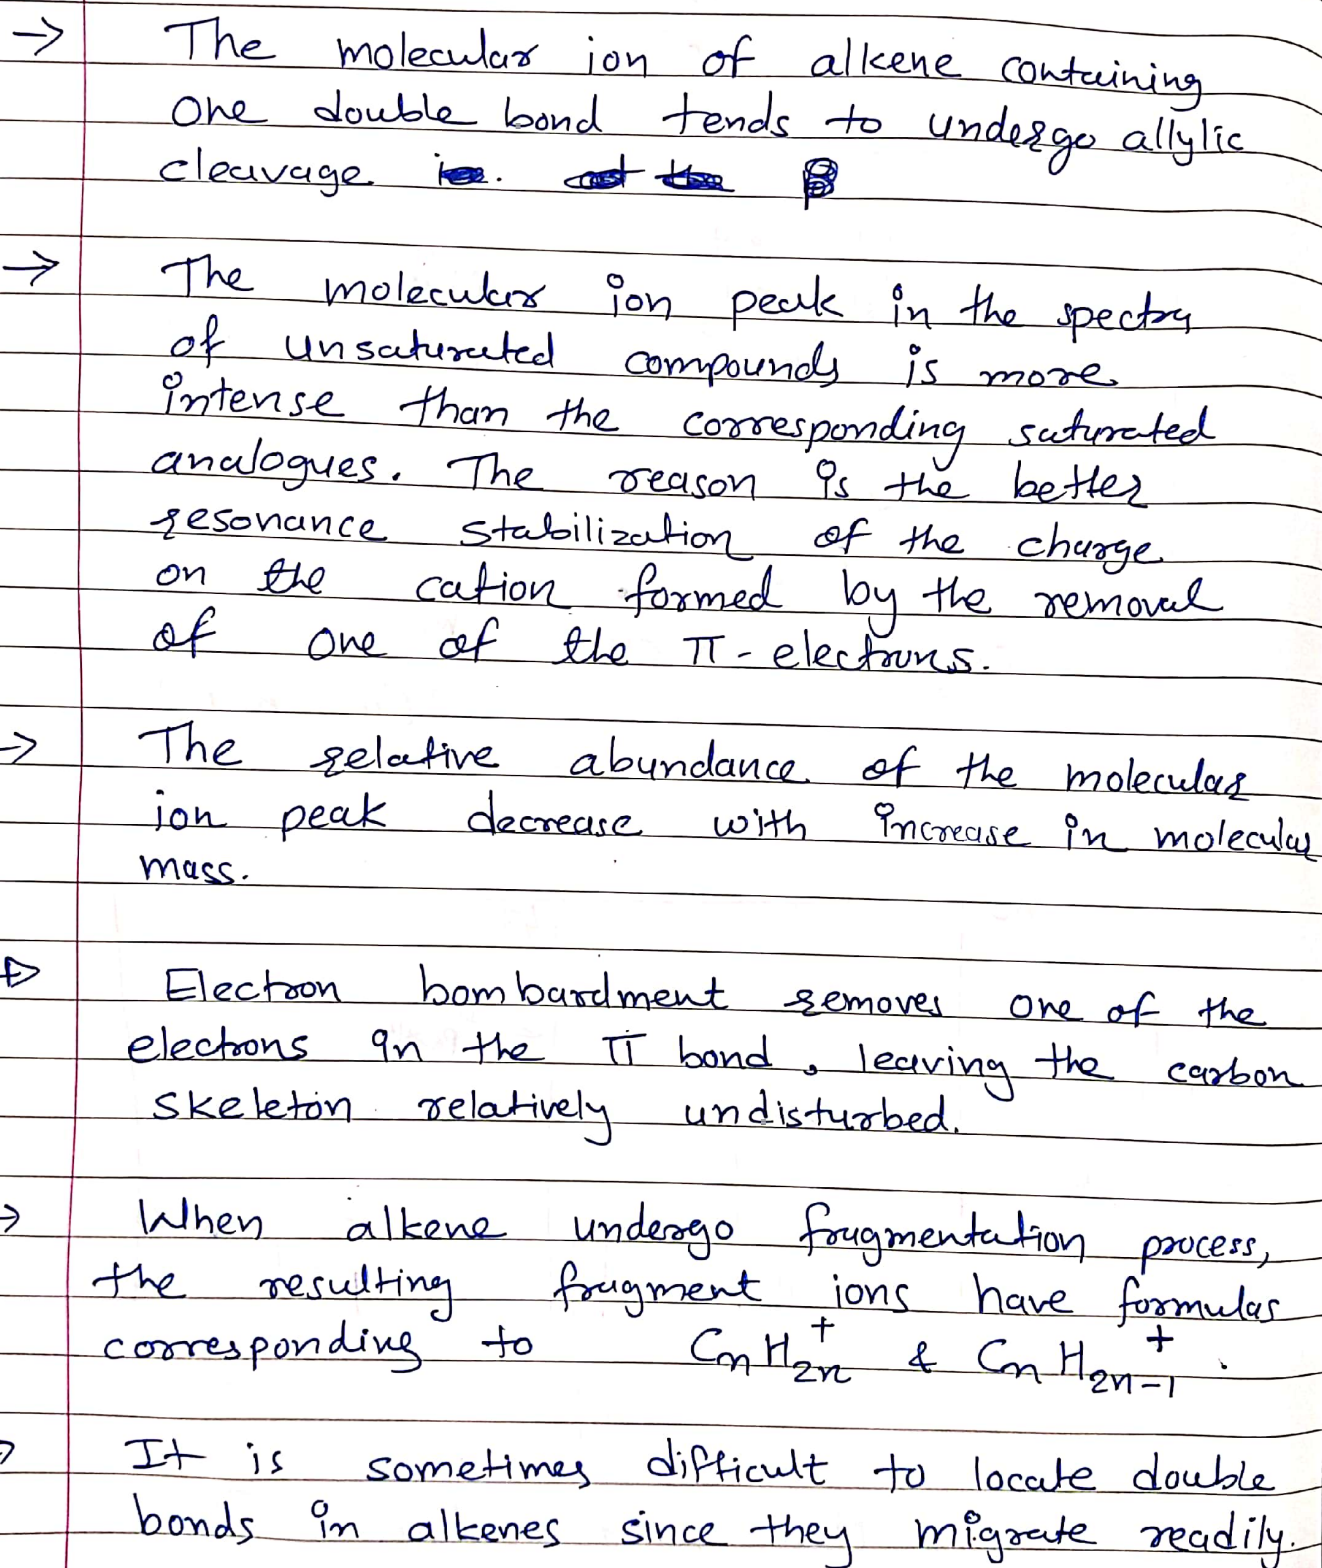 → The molecular ion of alkene containing
one double bond tends to undergo allylic
cleavage
→ The molecular ion peak in the spectra
of unsaturated compounds is more
intense than the corresponding saturated
analogues. The reason is the better
resonance stabilization of the charge
on the cation formed by the removal
of one of the π-electrons.
→ The relative abundance of the molecular
ion peak decrease with increase in molecular
mass.
→ Electron bombardment removes one of the
electrons in the π bond, leaving the carbon
skeleton relatively undisturbed.
→ When alkene undergo fragmentation process,
the resulting fragment ions have formulas
corresponding to CnH2n⁺ & CnH2n-1⁺.
→ It is sometimes difficult to locate double
bonds in alkenes since they migrate readily.